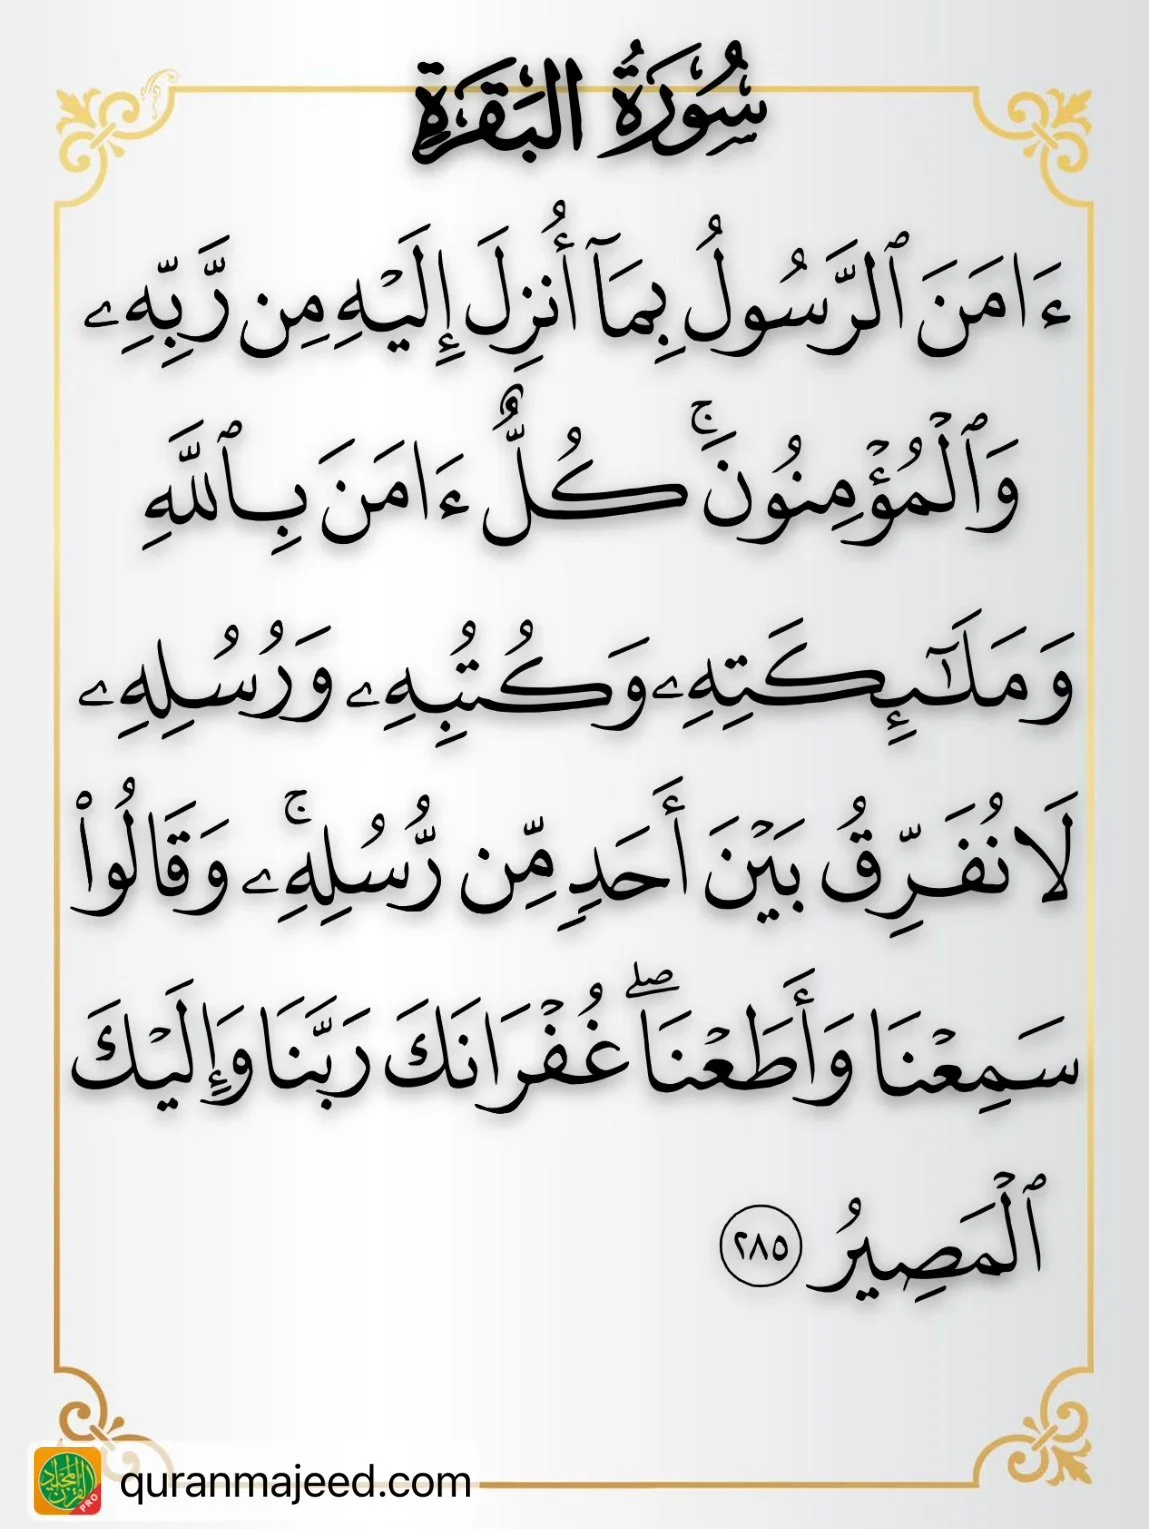 سُورَةُ البَقَرَةِ
ءَامَنَ ٱلرَّسُولُ بِمَآ أُنزِلَ إِلَيْهِ مِن رَّبِّهِۦ
وَٱلْمُؤْمِنُونَ ۚ كُلٌّ ءَامَنَ بِٱللَّهِ
وَمَلَـٰٓئِكَتِهِۦ وَكُتُبِهِۦ وَرُسُلِهِۦ
لَا نُفَرِّقُ بَيْنَ أَحَدٍ مِّن رُّسُلِهِۦ ۚ وَقَالُوا۟
سَمِعْنَا وَأَطَعْنَا ۖ غُفْرَانَكَ رَبَّنَا وَإِلَيْكَ
ٱلْمَصِيرُ ٢٨٥
القرآن المجيد
PRO
quranmajeed.com